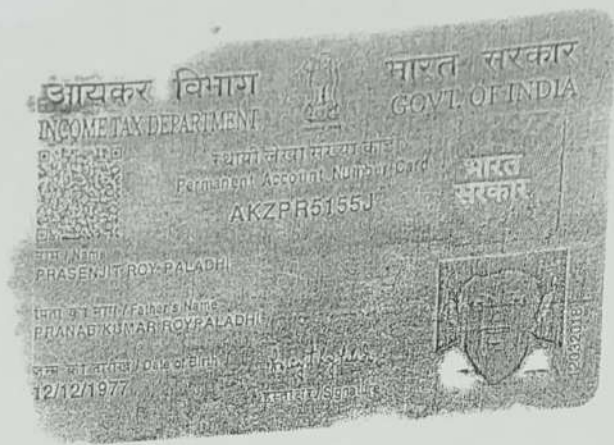 आयकर विभाग
INCOME TAX DEPARTMENT
भारत सरकार
GOVT. OF INDIA
स्थायी लेखा संख्या कार्ड
Permanent Account Number Card
AKZPR5155J
भारत
सरकार
नाम / Name
PRASENJIT ROY PALADHI
पिता का नाम / Father's Name
PRANAB KUMAR ROYPALADHI
जन्म की तारीख / Date of Birth
12/12/1977
हस्ताक्षर / Signature